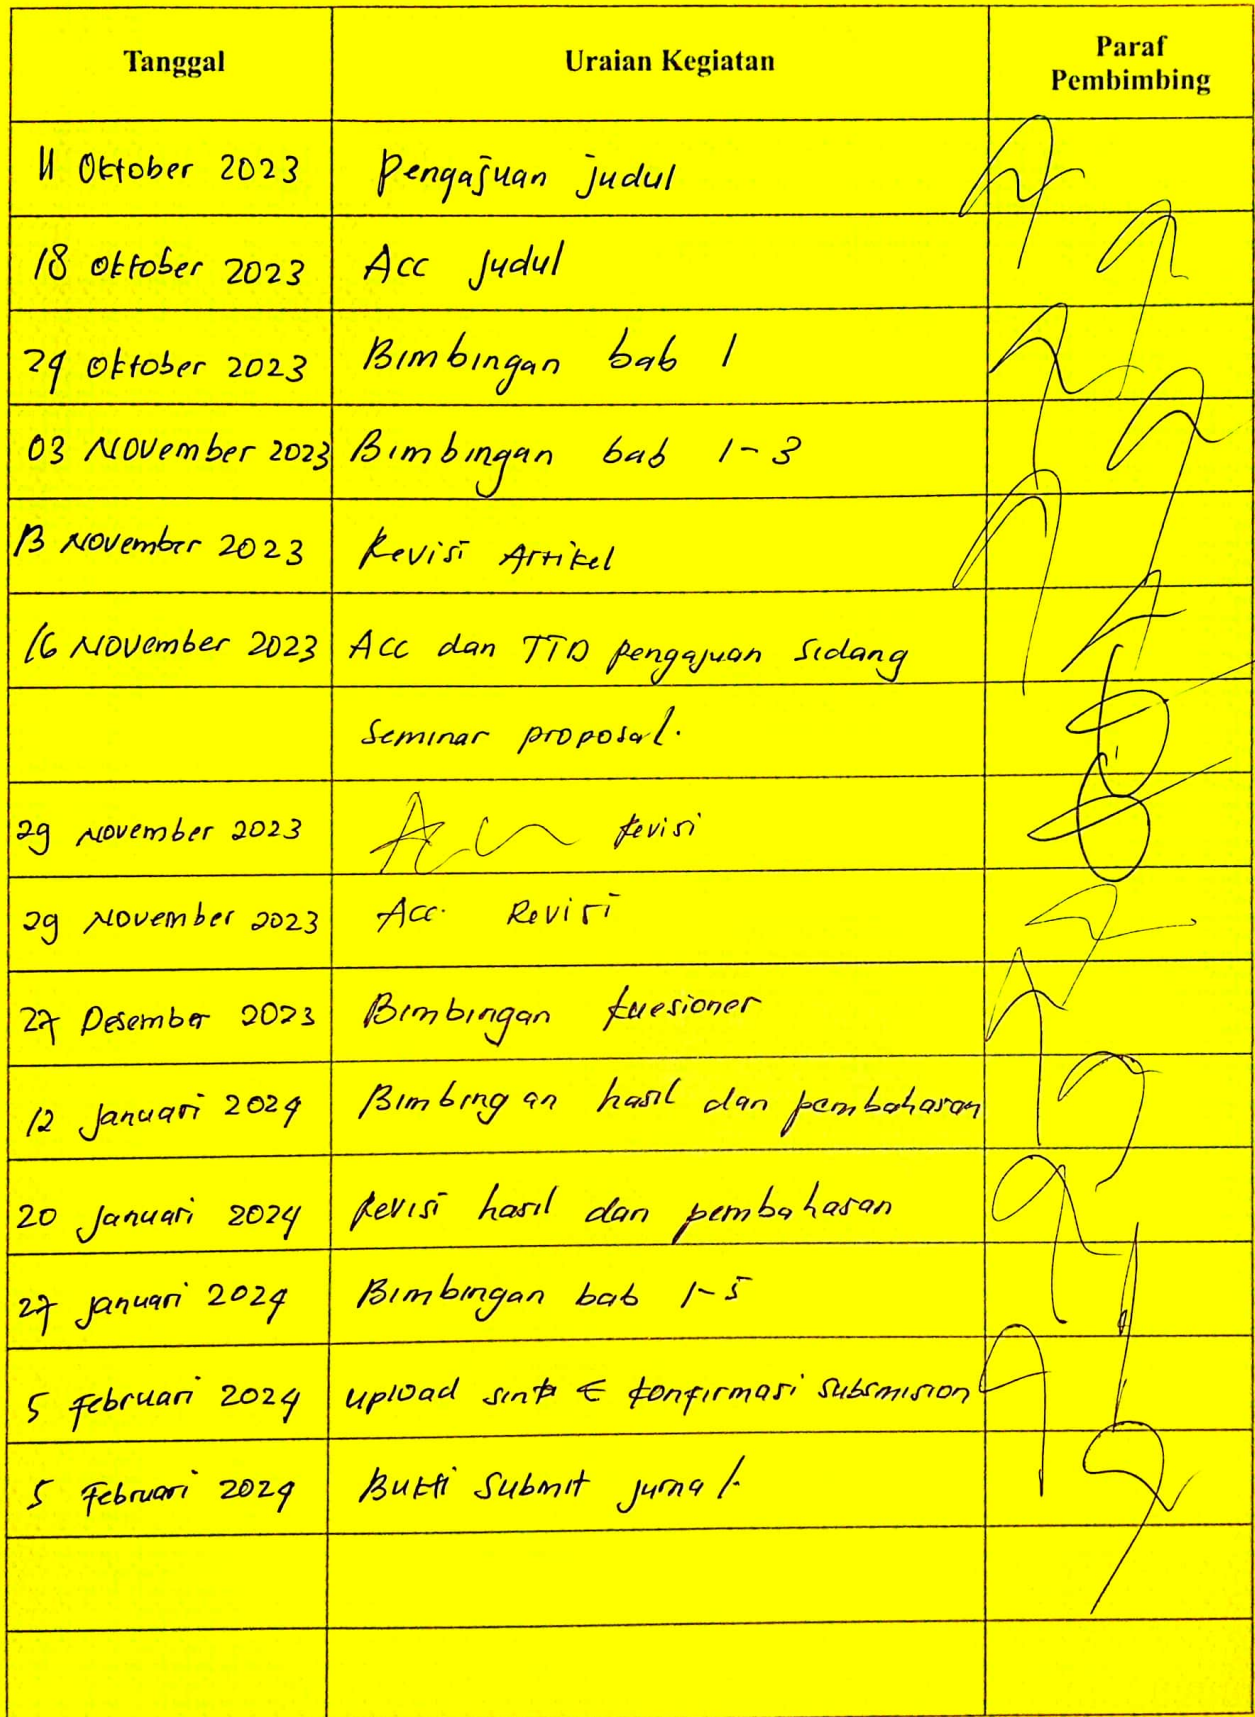 Tanggal Uraian Kegiatan Paraf Pembimbing
11 Oktober 2023 Pengajuan judul
18 Oktober 2023 Acc Judul
29 Oktober 2023 Bimbingan bab 1
03 November 2023 Bimbingan bab 1-3
13 November 2023 Revisi Artikel
16 November 2023 Acc dan TTD pengajuan sidang
Seminar proposal.
29 November 2023 Acc revisi
29 November 2023 Acc. Revisi
27 Desember 2023 Bimbingan kuesioner
12 Januari 2024 Bimbingan hasil dan pembahasan
20 Januari 2024 Revisi hasil dan pembahasan
27 januari 2024 Bimbingan bab 1-5
5 februari 2024 upload sinta & konfirmasi subsmision
5 Februari 2024 Bukti Submit jurnal.